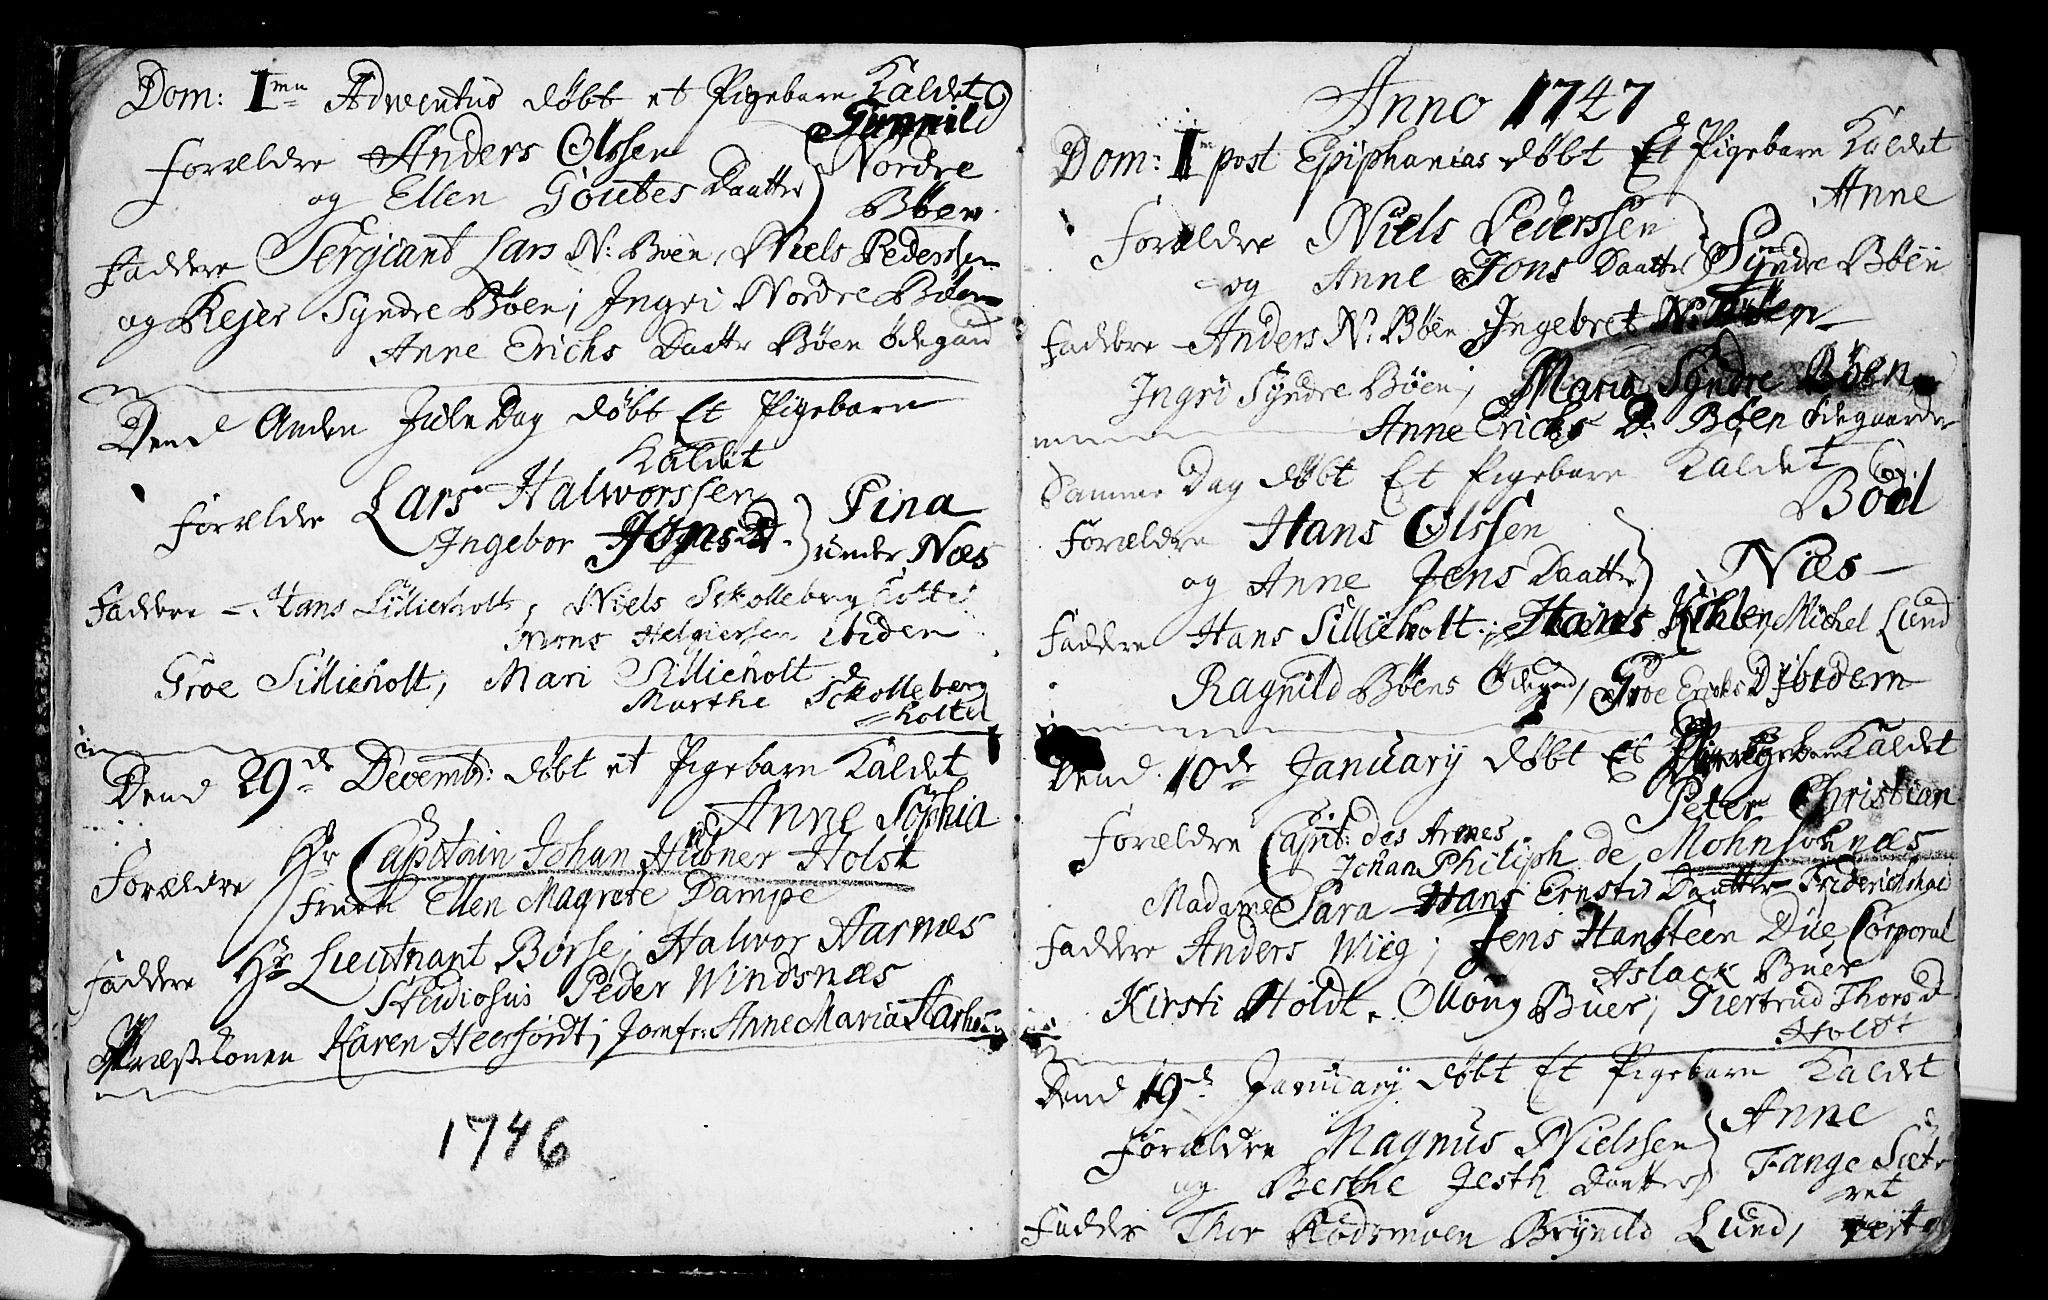 Dom: I<sup>mu</sup> Adventus døbt et Pigebarn Kaldet
Gunnild
Forældre Anders Olssen
og Ellen Goutes Daatter
Nordre
Bøen
Faddere Sergiant Lars N: Bøen, Niels Pederssen
og Rejer Syndre Bøen; Ingri Nordre Bøen
Anne Erichs Daattr Bøen Ødegaard
Dend Anden Jule Dag døbt Et Pigebarn
Kaldet
Forældre Lars Halworssen
Ingebor Jons D.
Pina
under Næs
Faddere Hans Sillieholt, Niels Skolleberg
Mons Helgiersen ibidem
Groe Sillieholt, Mari Sillieholt
Marthe Skolleberg
=holtel
Dend 29<sup>de</sup> Decembr: døbt et Pigebarn Kaldet
Anne Sophia
Forældre Hr Capitain Johan Hübner Holst
Frue Ellen Magrete Dampe
Faddere Hr Lieutnant Børse; Halwor Aarnæs
Studiosus Peder Windsnæs
Præstekonen Karen Heerfordt; Jomfr: Anne Maria
1746
Anno 1747
Dom: I<sup>m</sup> post Epiphanias døbt Et Pigebarn Kaldet
Anne
Forældre Niels Pederssen
og Anne Jons Daatter
Syndre Bøen
Faddere Anders N: Bøen Ingebret N:
Ingri Syndre Bøen; Maria Syndre Bøen
Anne Erichs D: Bøen Ødegaarden
Samme Dag døbt Et Pigebarn Kaldet
Bodil
Forældre Hans Olssen
og Anne Jens Daatter
Næs
Faddere Hans Sillieholt; Hans Kihlen, Michel Lund
Ragnild Bøens Ødegaard, Groe Erichs D ibidem
Dend 10<sup>de</sup> January døbt Et Kaldet
Peter Christian
Forældre Capit: des Armes
Johan Philiph de Mohnsoknæs
Madame Sara Hans Ernstes Daatter
Faddere Anders Wiig; Jens Hansteen Due, Corporal
Aslack Buer
Kirsti Holdt, Olloug Buer; Giertrud Thors D
Holdt
Dend 19<sup>de</sup> January døbt Et Pigebarn Kaldet
Anne
Forældre Magnus Nielssen
og Berthe Jesth Daatter
Tange Sæt
ret
Faddere Thor Rødsmoen Brynild Lund,